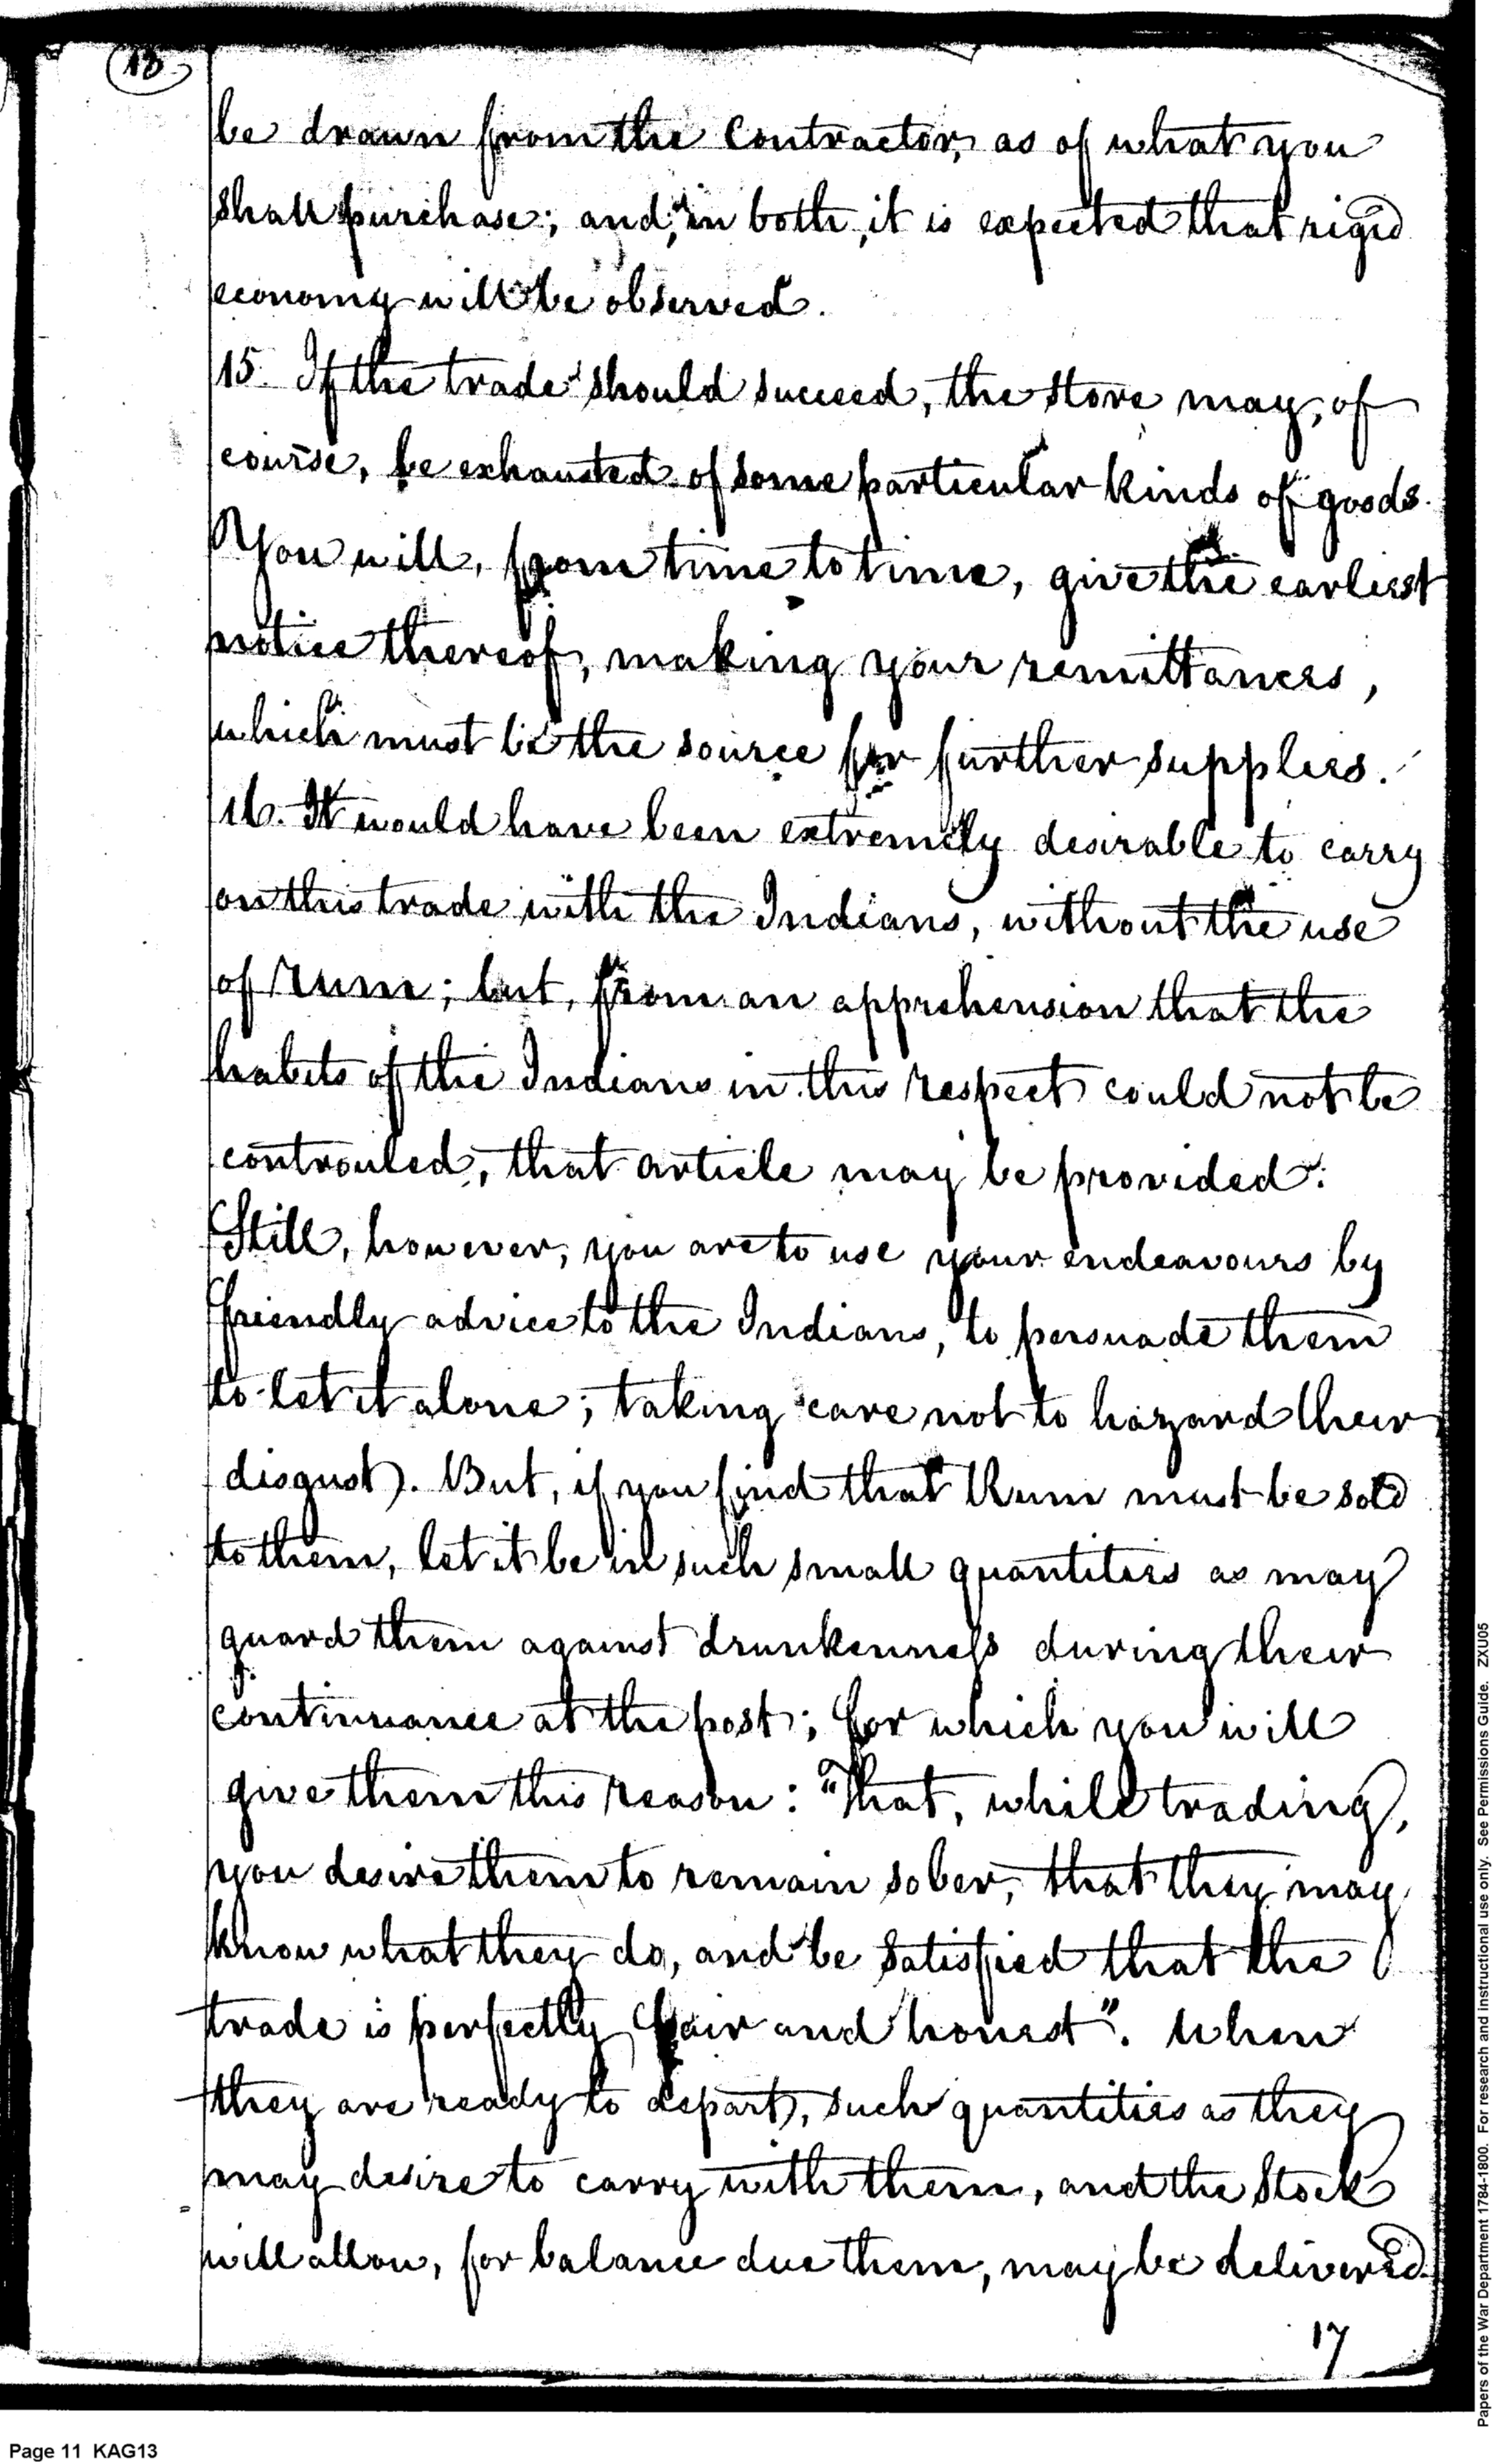 18
be drawn from the Contractor, as of what you
shall purchase; and, in both, it is expected that rigid
economy will be observed.
15. If the trade should succeed, the store may, of
course, be exhausted of some particular kinds of goods.
You will, from time to time, give the earliest
notice thereof, making your remittances,
which must be the source for further supplies.
16. It would have been extremely desirable to carry
on this trade with the Indians, without the use
of Rum; but, from an apprehension that the
habits of the Indians in this respect could not be
controuled, that article may be provided.
Still, however, you are to use your endeavours by
friendly advice to the Indians, to persuade them
to let it alone; taking care not to hazard their
disgust. But, if you find that Rum must be sold
to them, let it be in such small quantities as may
guard them against drunkenness during their
continuance at the post; for which you will
give them this reason: "That, while trading,
you desire them to remain sober, that they may
know what they do, and be satisfied that the
trade is perfectly fair and honest". When
they are ready to depart, such quantities as they
may desire to carry with them, and the Stock
will allow, for balance due them, may be delivered.
17
Page 11 KAG13
Papers of the War Department 1784-1800. For research and instructional use only. See Permissions Guide. ZXU05